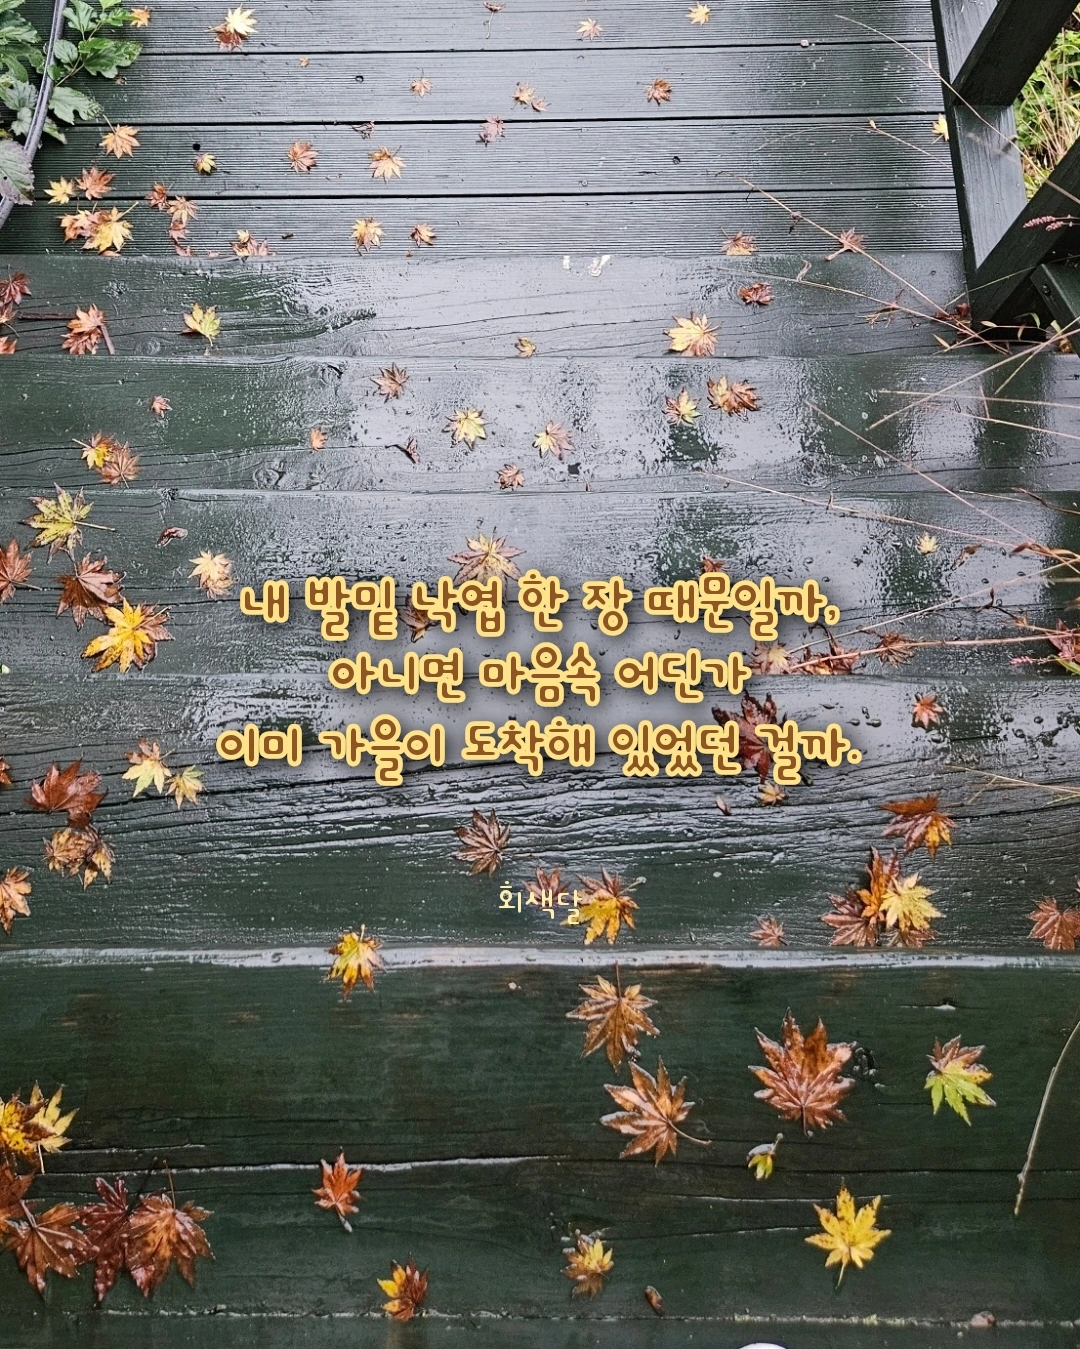 내 발밑 낙엽 한 장 때문일까,
아니면 마음속 어딘가
이미 가을이 도착해 있었던 걸까.
회색달